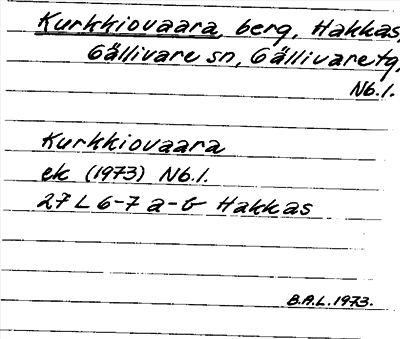 Kurkkiovaara, berg, Hakkas,
Gällivare sn, Gällivare tg,
Nb.l.
Kurkkiovaara
ek (1973) Nb.l.
27 L 6-7 a-b Hakkas
B.A.L. 1973.